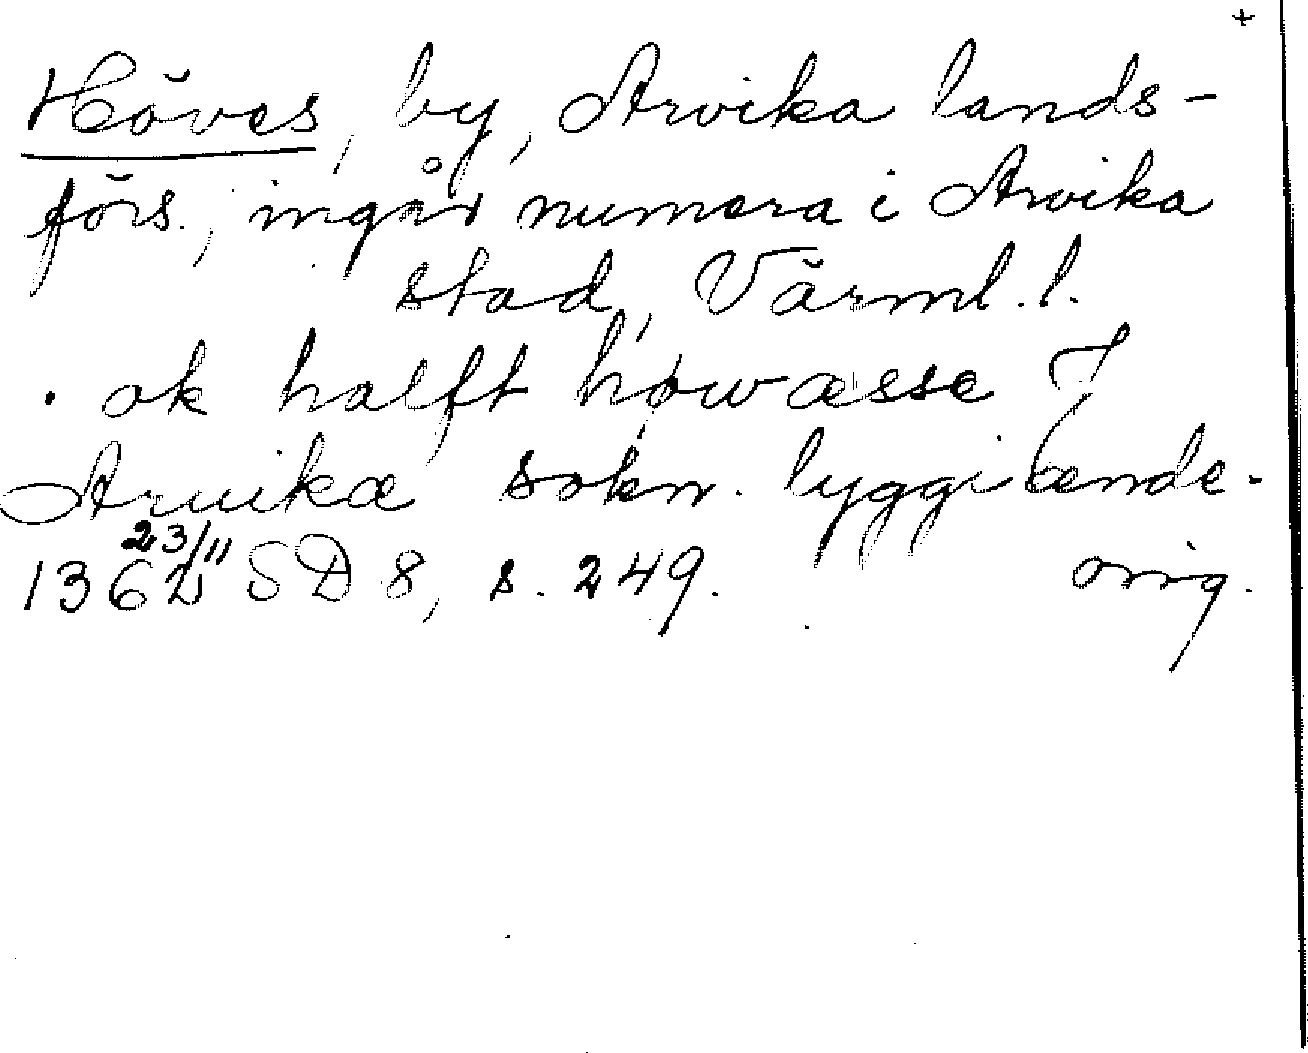 +
Höves, by, Arvika lands-
förs., ingår numera i Arvika
stad, Värml. l.
. ok halfft høwæsse J
Aruikæ sokn. lyggiænde.
23/11
1362 SD 8, s. 249. orig.